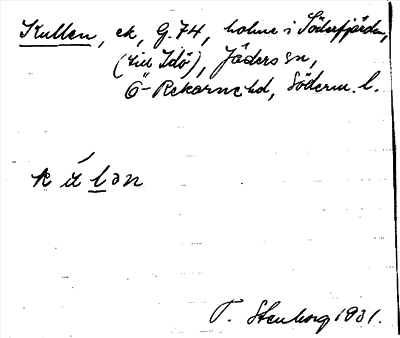 Kullen, ek, G.74, holme i Söderfjärden,
(till Idö), Jäders sn,
Ö-Rekarne hd, Söderm. l.
T. Stenborg 1931.